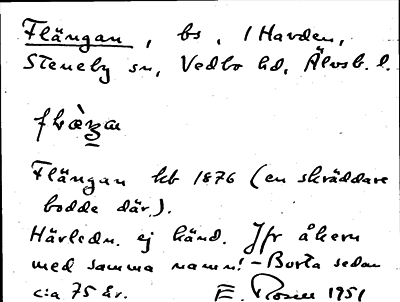 Flängan, bs, 1 Havden,
Steneby sn, Vedbo hd, Älvsb. l.
flæ̀ŋa
Flängan hb 1876 (en skräddare
bodde där).
Härledn. ej känd. Jfr åkern
med samma namn! – Borta sedan
c:a 75 år. E. Rosén 1951